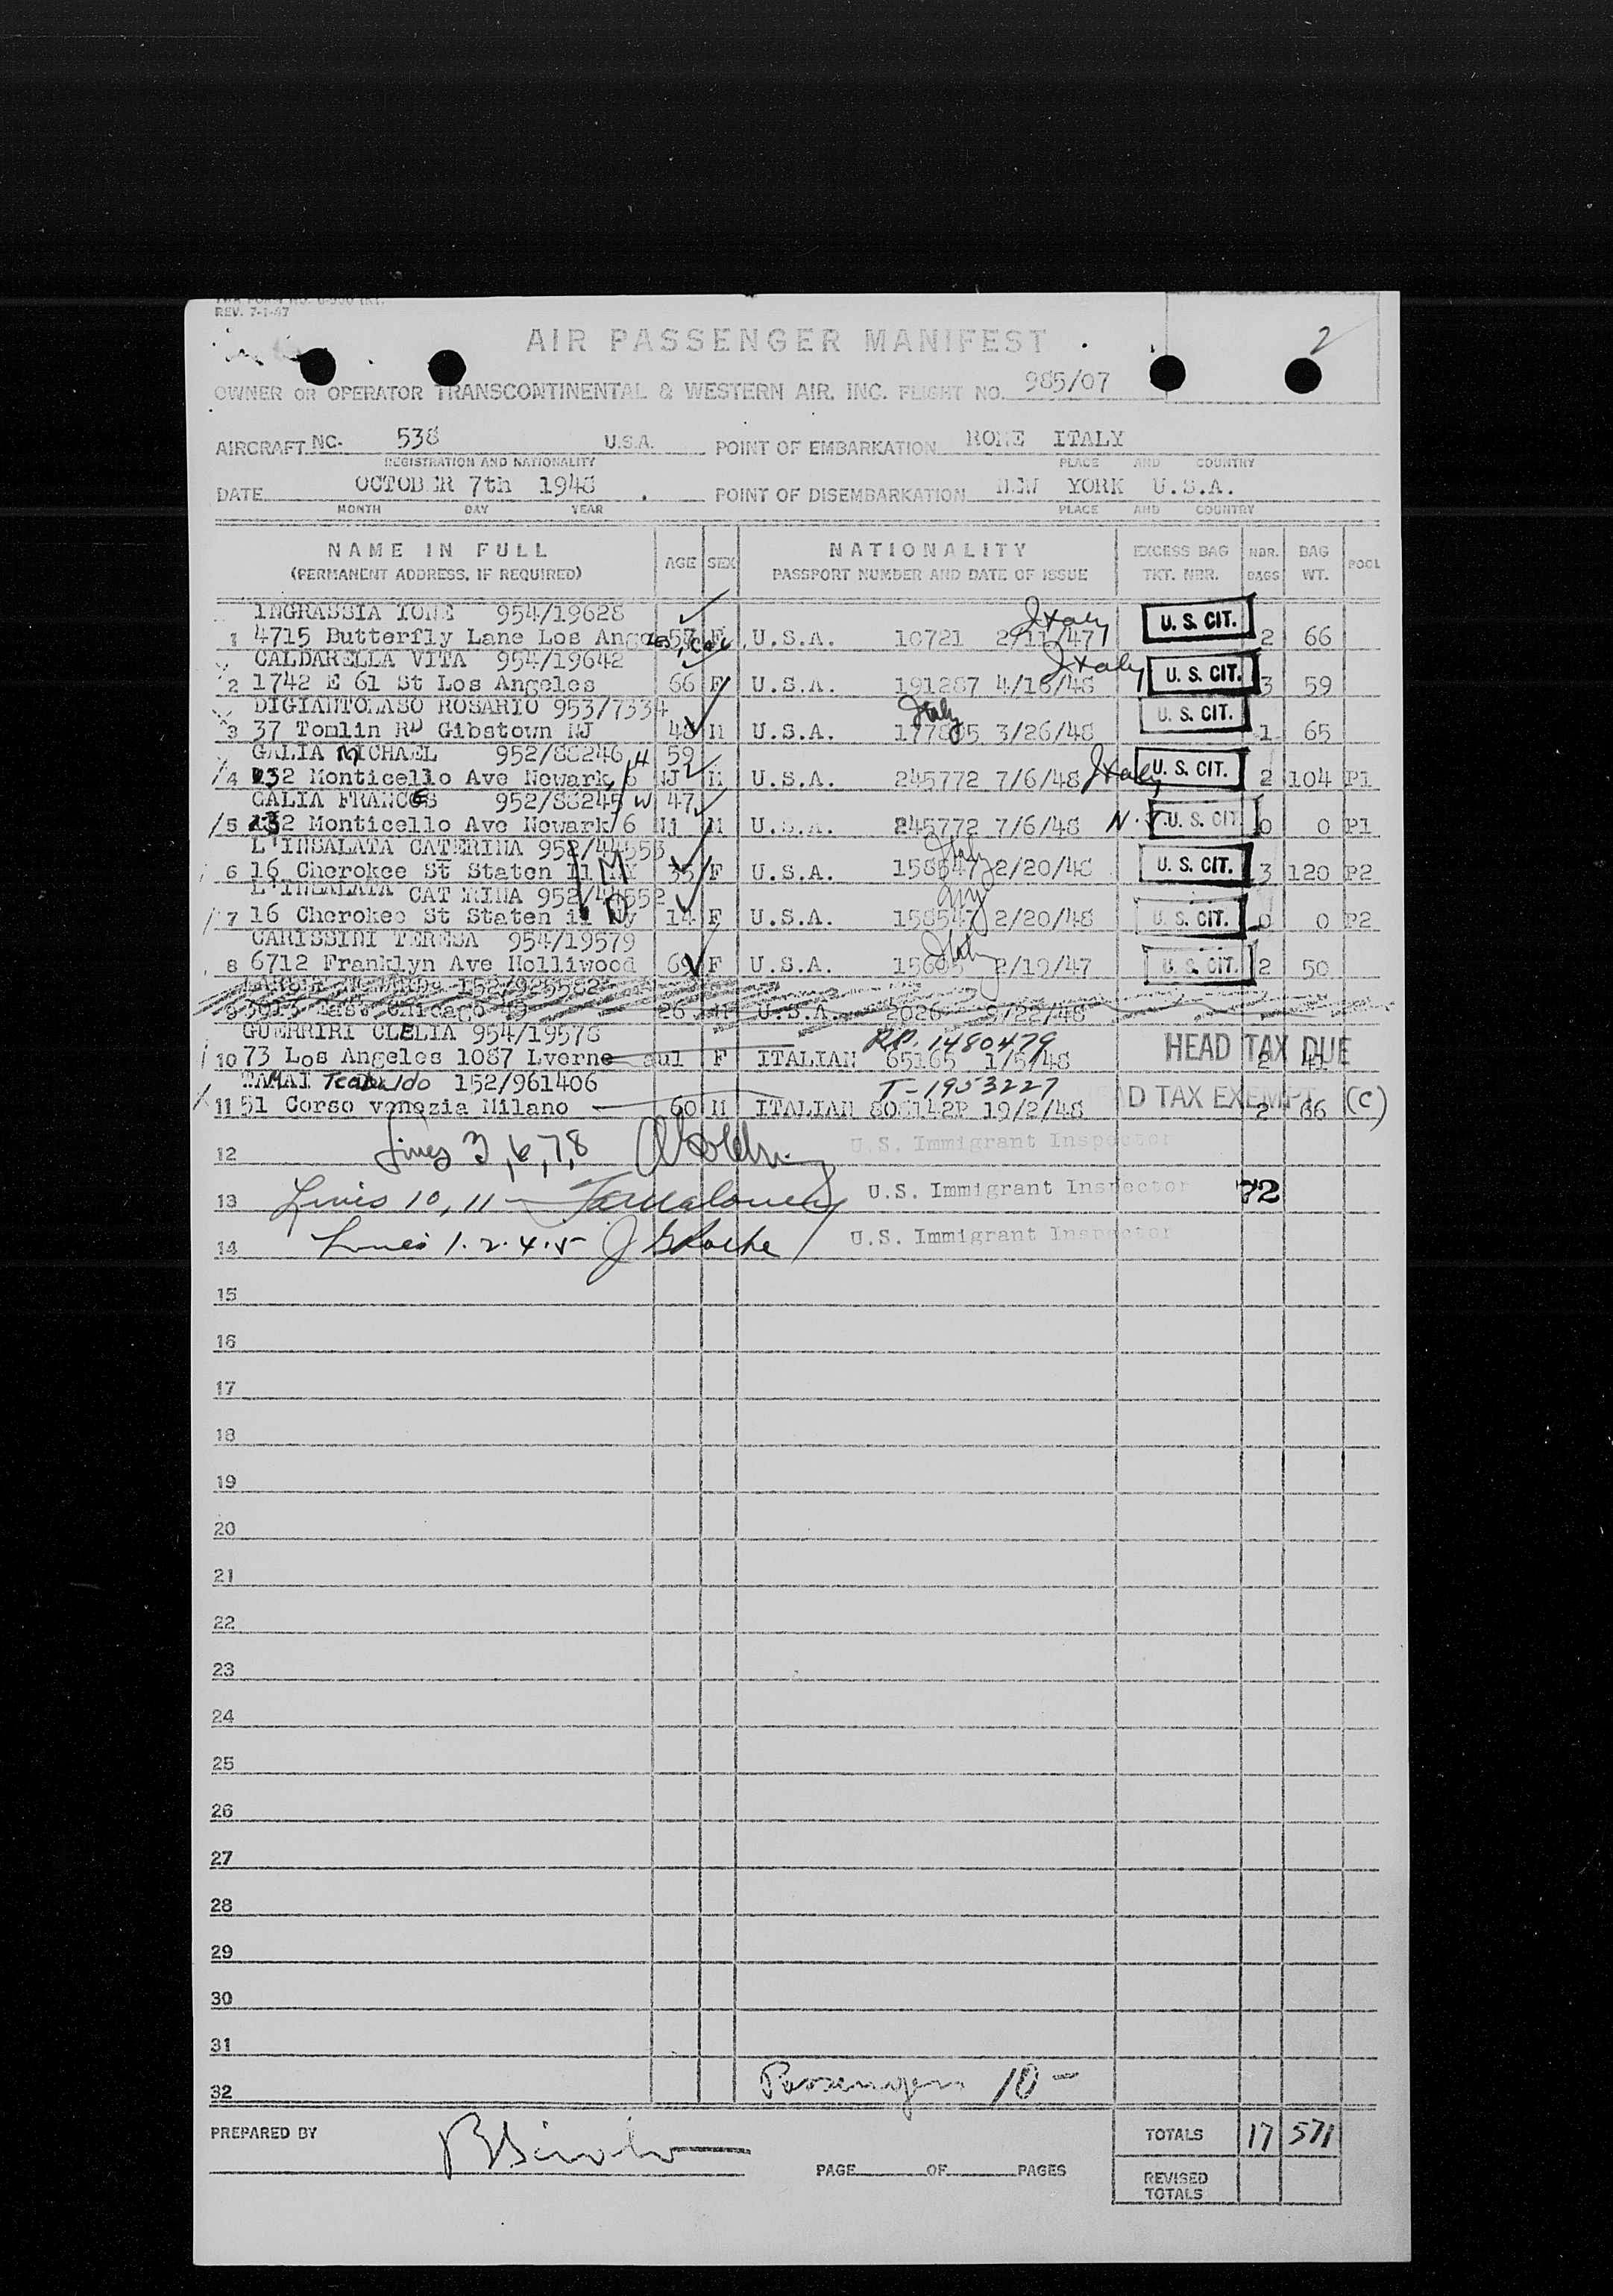 REV. 7-1-47
AIR PASSENGER MANIFEST
2
OWNER OR OPERATOR TRANSCONTINENTAL & WESTERN AIR. INC. FLIGHT NO. 985/07
AIRCRAFT NC. 538 U.S.A. POINT OF EMBARKATION ROME ITALY
REGISTRATION AND NATIONALITY PLACE AND COUNTRY
DATE OCTOBER 7th 1948 POINT OF DISEMBARKATION NEW YORK U.S.A.
MONTH DAY YEAR PLACE AND COUNTRY
NAME IN FULL AGE SEX NATIONALITY EXCESS BAG NBR. BAG POOL
(PERMANENT ADDRESS, IF REQUIRED) PASSPORT NUMBER AND DATE OF ISSUE TKT. NBR. BAGS WT.
INGRASSIA TONE 954/19628 Italy U. S. CIT.
1 4715 Butterfly Lane Los Angeles, Cal 57 F U.S.A. 10721 2/11/47 2 66
CALDARELLA VITA 954/19642 Italy U. S. CIT.
2 1742 E 61 St Los Angeles 66 F U.S.A. 191287 4/16/48 3 59
DIGIANTOMASO ROSARIO 953/7334 Italy U. S. CIT.
3 37 Tomlin RD Gibstown NJ 48 M U.S.A. 177805 3/26/48 1 65
GALIA MICHAEL 952/88246 H 59 U. S. CIT.
4 232 Monticello Ave Newark, 6 NJ M U.S.A. 245772 7/6/48 Italy 2 104 P1
CALIA FRANCES 952/88245 W 47
5 132 Monticello Ave Newark 6 Nj M U.S.A. 245772 7/6/48 N.Y. U. S. CIT 0 0 P1
L'INSALATA CATERINA 952/44553 Italy
6 16 Cherokee St Staten Il NY 35 F U.S.A. 158547 2/20/48 U. S. CIT. 3 120 P2
L'INSALATA CAT RINA 952/44552 NY
7 16 Cherokee St Staten il Ny 14 F U.S.A. 158547 2/20/48 U. S. CIT. 0 0 P2
CARISSINI TERESA 954/19579 Italy
8 6712 Franklyn Ave Holliwood 69 F U.S.A. 15605 2/19/47 U. S. CIT. 2 50
152/929582
9 East Chicago 49 26 M U.S.A. 2026 9/22/48
GUERRIRI CLELIA 954/19578 R.P. 1480479 HEAD TAX DUE
10 73 Los Angeles 1087 Lverne aul F ITALIAN 65165 1/5/48 2 41
TAMAI Teobaldo 152/961406 T-1953227 HEAD TAX EXEMPT (C)
11 51 Corso venezia Milano 60 M ITALIAN 19/2/48 2 66
12 Lines 3,6,7,8 U.S. Immigrant Inspector
13 Lines 10, 11 U.S. Immigrant Inspector 72
14 Lines 1.2.4.5 U.S. Immigrant Inspector
15
16
17
18
19
20
21
22
23
24
25
26
27
28
29
30
31
32 Passengers 10 -
PREPARED BY TOTALS 17 571
PAGE OF PAGES REVISED
TOTALS